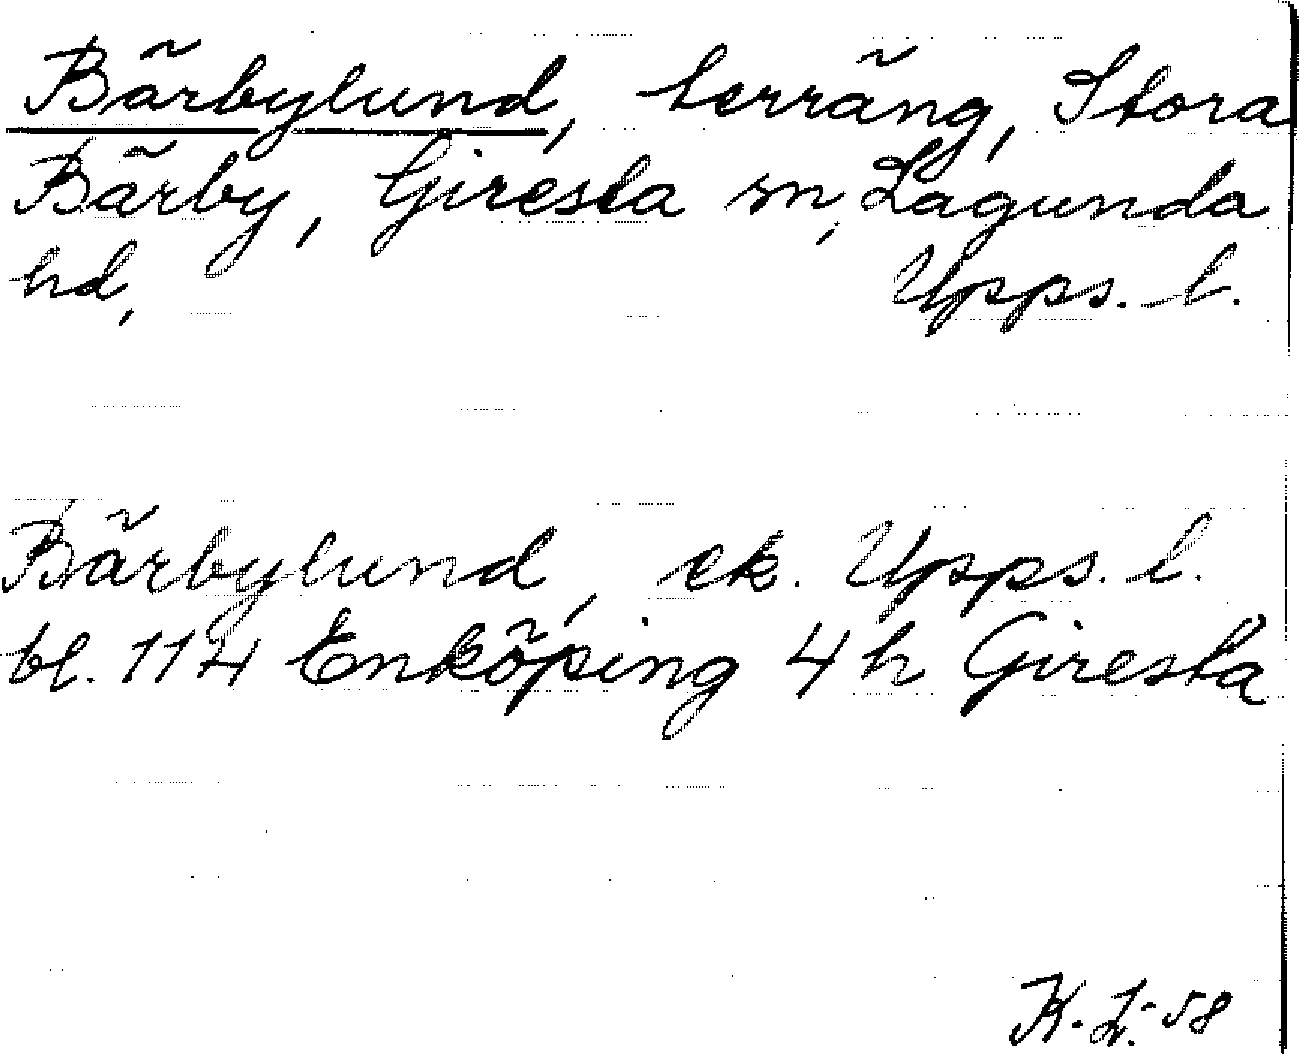 Bärbylund, terräng, Stora
Bärby, Giresta sn, Lagunda
hd, Upps. l.
Bärbylund, ek. Upps. l.
bl. 114 Enköping 4 h Giresta
K. L. 58